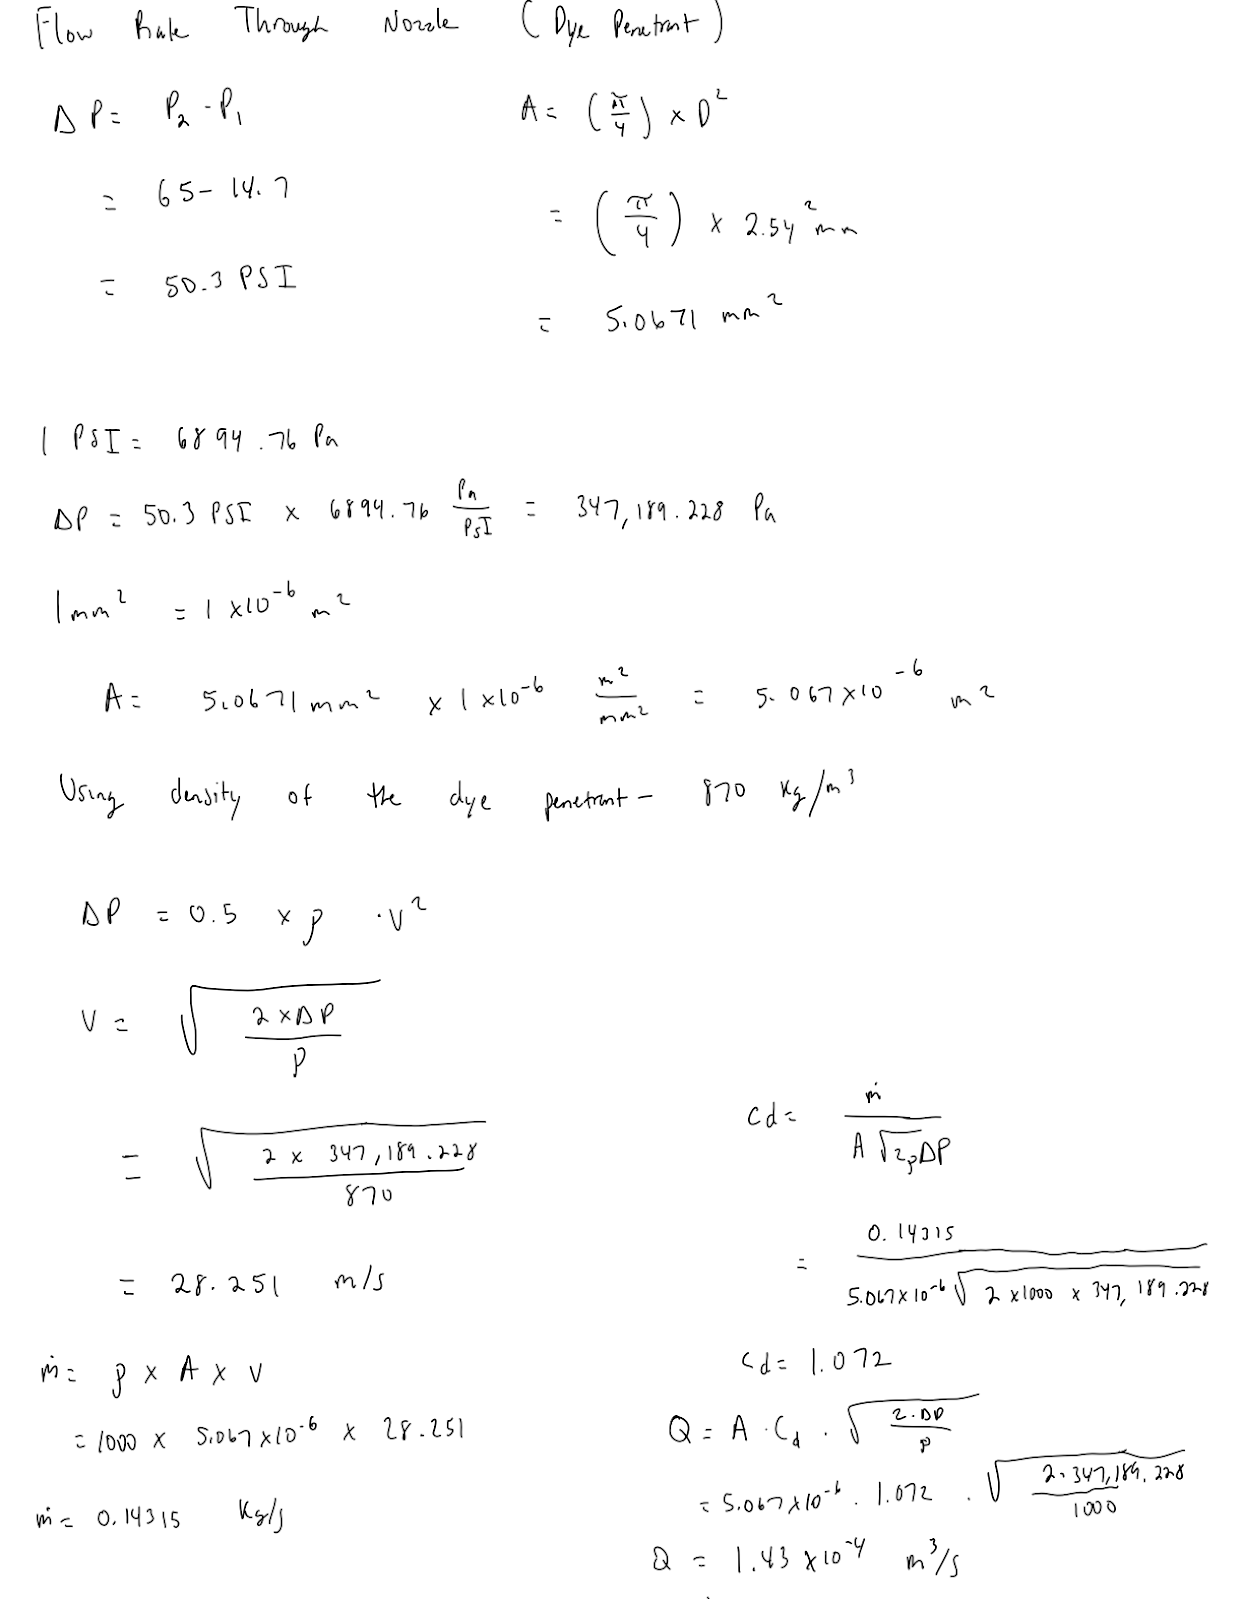 Flow Rate Through Nozzle (Dye Penetrant)
ΔP = P₂ - P₁
= 65 - 14.7
= 50.3 PSI
A = (π/4) × D²
= (π/4) × 2.54² mm
= 5.0671 mm²
1 PSI = 6894.76 Pa
ΔP = 50.3 PSI × 6894.76 Pa/PSI = 347,189.228 Pa
1 mm² = 1 × 10⁻⁶ m²
A = 5.0671 mm² × 1 × 10⁻⁶ m²/mm² = 5.067 × 10⁻⁶ m²
Using density of the dye penetrant – 870 Kg/m³
ΔP = 0.5 × ρ · V²
V = √(2 × ΔP / ρ)
= √(2 × 347,189.228 / 870)
= 28.251 m/s
ṁ = ρ × A × V
= 1000 × 5.067 × 10⁻⁶ × 28.251
ṁ = 0.14315 Kg/s
Cd = ṁ / (A √2ρΔP)
= 0.14315 / (5.067 × 10⁻⁶ √(2 × 1000 × 347,189.228))
Cd = 1.072
Q = A · Cd · √(2·ΔP / ρ)
= 5.067 × 10⁻⁶ · 1.072 · √(2·347,189.228 / 1000)
Q = 1.43 × 10⁻⁴ m³/s